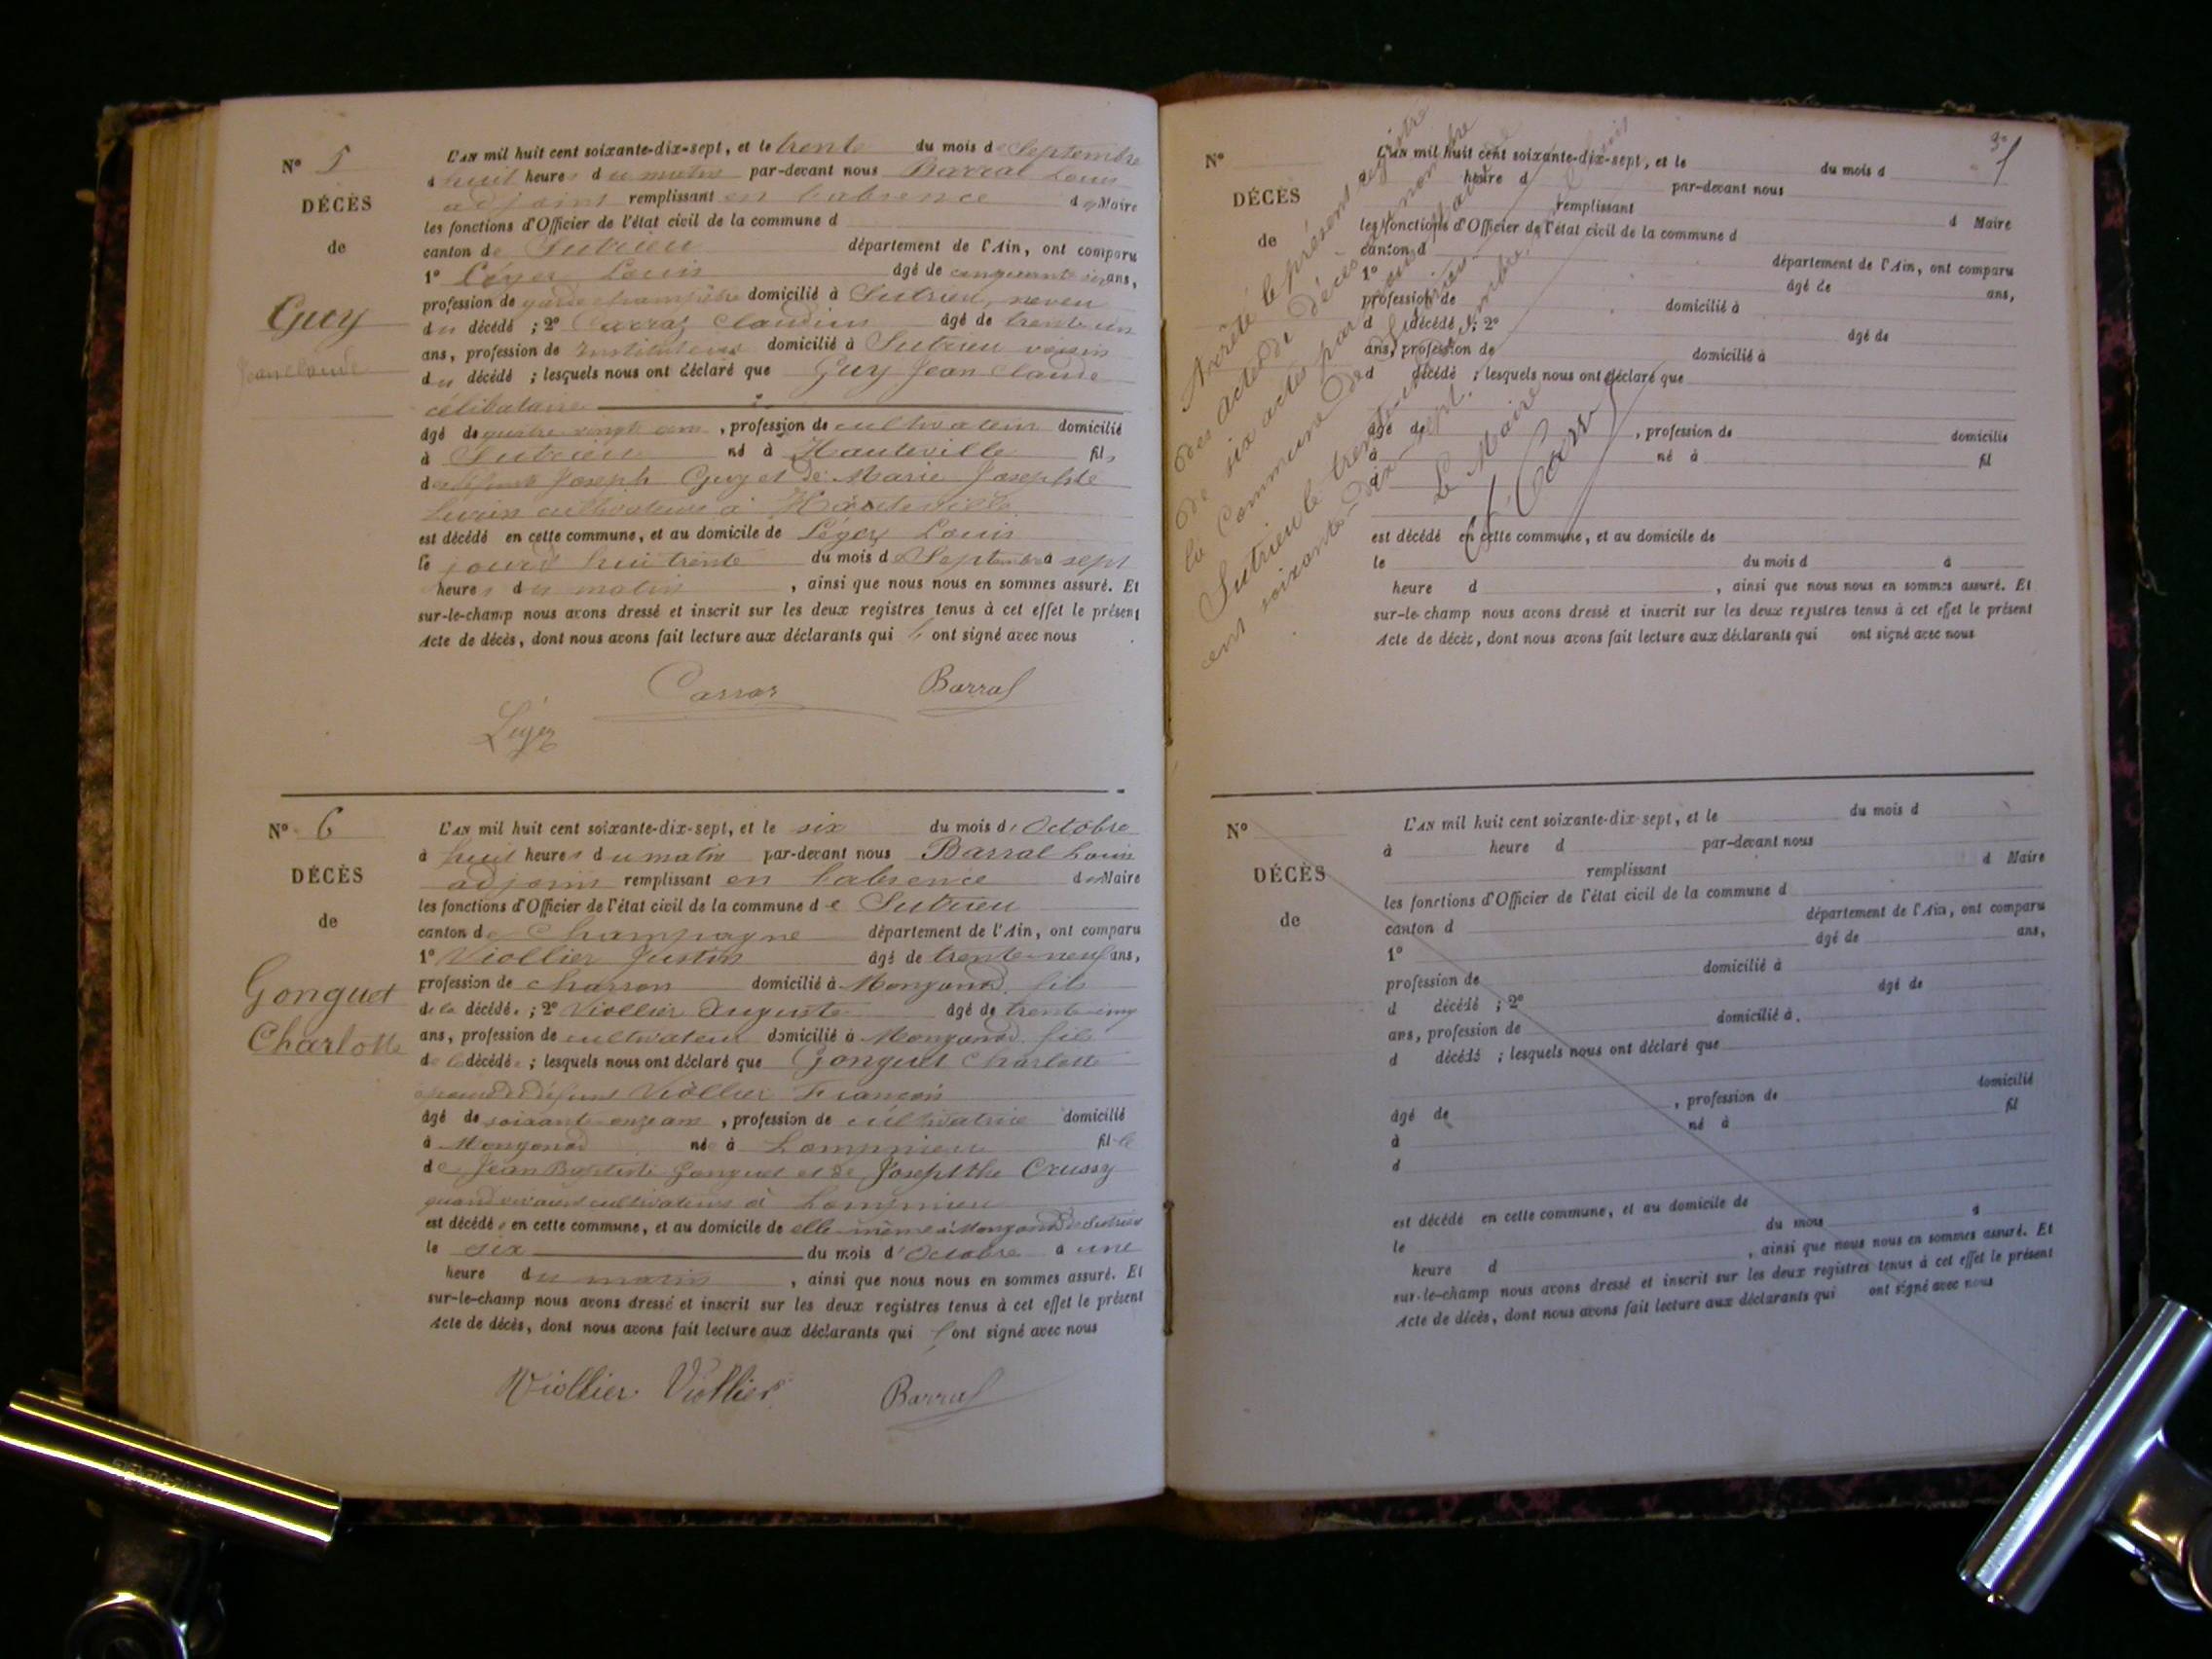 N° 5
DÉCÈS
de
Guy
Jean Claude
L'AN mil huit cent soixante-dix-sept, et le trente du mois de Septembre
à huit heures du matin par-devant nous Barral Louis
adjoint remplissant en l'absence du Maire
les fonctions d'Officier de l'état civil de la commune d
canton de Sutrieu département de l'Ain, ont comparu
1° Léger Louis âgé de cinquante six ans,
profession de garde champêtre domicilié à Sutrieu, neveu
du décédé ; 2° Carraz Claudius âgé de trente un
ans, profession de Instituteur domicilié à Sutrieu voisin
du décédé ; lesquels nous ont déclaré que Guy Jean Claude
célibataire
âgé de quatre vingt ans, profession de cultivateur domicilié
à Sutrieu né à Hauteville fils
de défunts Joseph Guy et de Marie Josephte
cultivateurs à Hauteville
est décédé en cette commune, et au domicile de Léger Louis
le jourd'hui trente du mois de Septembre à sept
heures du matin, ainsi que nous nous en sommes assuré. Et
sur-le-champ nous avons dressé et inscrit sur les deux registres tenus à cet effet le présent
Acte de décès, dont nous avons fait lecture aux déclarants qui ont signé avec nous
Carraz Barral
Léger
N° 6
DÉCÈS
de
Gonguet
Charlotte
L'AN mil huit cent soixante-dix-sept, et le six du mois d'Octobre
à huit heures du matin par-devant nous Barral Louis
adjoint remplissant en l'absence du Maire
les fonctions d'Officier de l'état civil de la commune de Sutrieu
canton de Champagne département de l'Ain, ont comparu
1° Viollier Justin âgé de trente-neuf ans,
profession de charron domicilié à Mongonod, fils
de la décédée ; 2° Viollier Auguste âgé de trente cinq
ans, profession de cultivateur domicilié à Mongonod, fils
de la décédée ; lesquels nous ont déclaré que Gonguet Charlotte
veuve de défunt Viollier François
âgé de soixante onze ans, profession de cultivatrice domicilié
à Mongonod né à Lompnieu fille
de Jean Baptiste Gonguet et de Josephthe Crussy
quand vivaient cultivateurs à Lompnieu
est décédée en cette commune, et au domicile de elle-même à Mongonod de Sutrieu
le six du mois d'Octobre à une
heure du matin, ainsi que nous nous en sommes assuré. Et
sur-le-champ nous avons dressé et inscrit sur les deux registres tenus à cet effet le présent
Acte de décès, dont nous avons fait lecture aux déclarants qui ont signé avec nous
Viollier Viollier Barral
N°
DÉCÈS
de
L'AN mil huit cent soixante-dix-sept, et le du mois d
à heure d par-devant nous
remplissant d Maire
les fonctions d'Officier de l'état civil de la commune d
canton d département de l'Ain, ont comparu
1° âgé de ans,
profession de domicilié à
d décédé ; 2° âgé de
ans, profession de domicilié à
d décédé ; lesquels nous ont déclaré que
âgé de , profession de domicilié
à né à fil
d
est décédé en cette commune, et au domicile de
le du mois d à
heure d , ainsi que nous nous en sommes assuré. Et
sur-le-champ nous avons dressé et inscrit sur les deux registres tenus à cet effet le présent
Acte de décès, dont nous avons fait lecture aux déclarants qui ont signé avec nous
Arrêté le présent registre
des actes de décès
de six actes par nous Maire
la Commune de Sutrieu
Sutrieu le trente-un
cent soixante-dix-sept.
Le Maire
N°
DÉCÈS
de
L'AN mil huit cent soixante-dix-sept, et le du mois d
à heure d par-devant nous
remplissant d Maire
les fonctions d'Officier de l'état civil de la commune d
canton d département de l'Ain, ont comparu
1° âgé de ans,
profession de domicilié à
d décédé ; 2° âgé de
ans, profession de domicilié à
d décédé ; lesquels nous ont déclaré que
âgé de , profession de domicilié
à né à fil
d
est décédé en cette commune, et au domicile de
le du mois à
heure d , ainsi que nous nous en sommes assuré. Et
sur-le-champ nous avons dressé et inscrit sur les deux registres tenus à cet effet le présent
Acte de décès, dont nous avons fait lecture aux déclarants qui ont signé avec nous